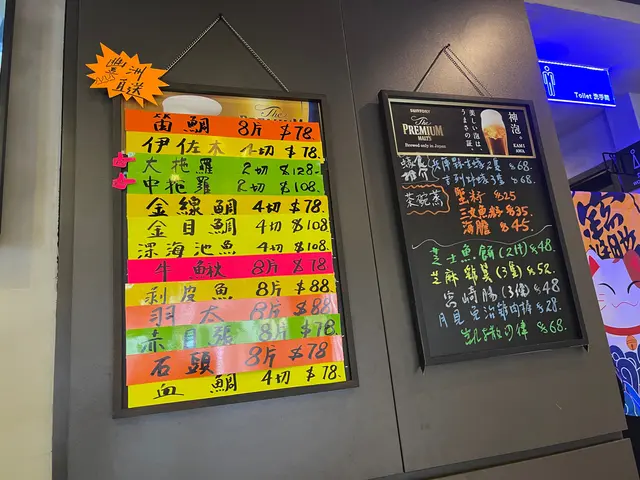 豐洲
直送
The
笛鯛 8片 $78.
伊佐木 4切 $78.
大拖羅 2切 $128.
中拖羅 2切 $108.
金線鯛 4切 $78.
金目鯛 4切 $108
深海池魚 4切 $108.
牛鰍 8片 $78
剥皮魚 8片 $88
羽太 8片 $88
赤目張 8片 $78
石頭 8片 $78
血鯛 4切 $78.
SUNTORY
The
PREMIUM
MALT'S
Brewed only in Japan
美しい泡は、
うまさの証。
神泡。
KAMI
AWA
$68.
$68.
茶碗蒸
$25
三文魚籽 $35.
海膽 $45.
芝士魚餅(2件) $48.
芝麻雞翼(3隻) $52.
宮崎腸(3條) $48
月見 $28.
$68.
Toilet 洗手間